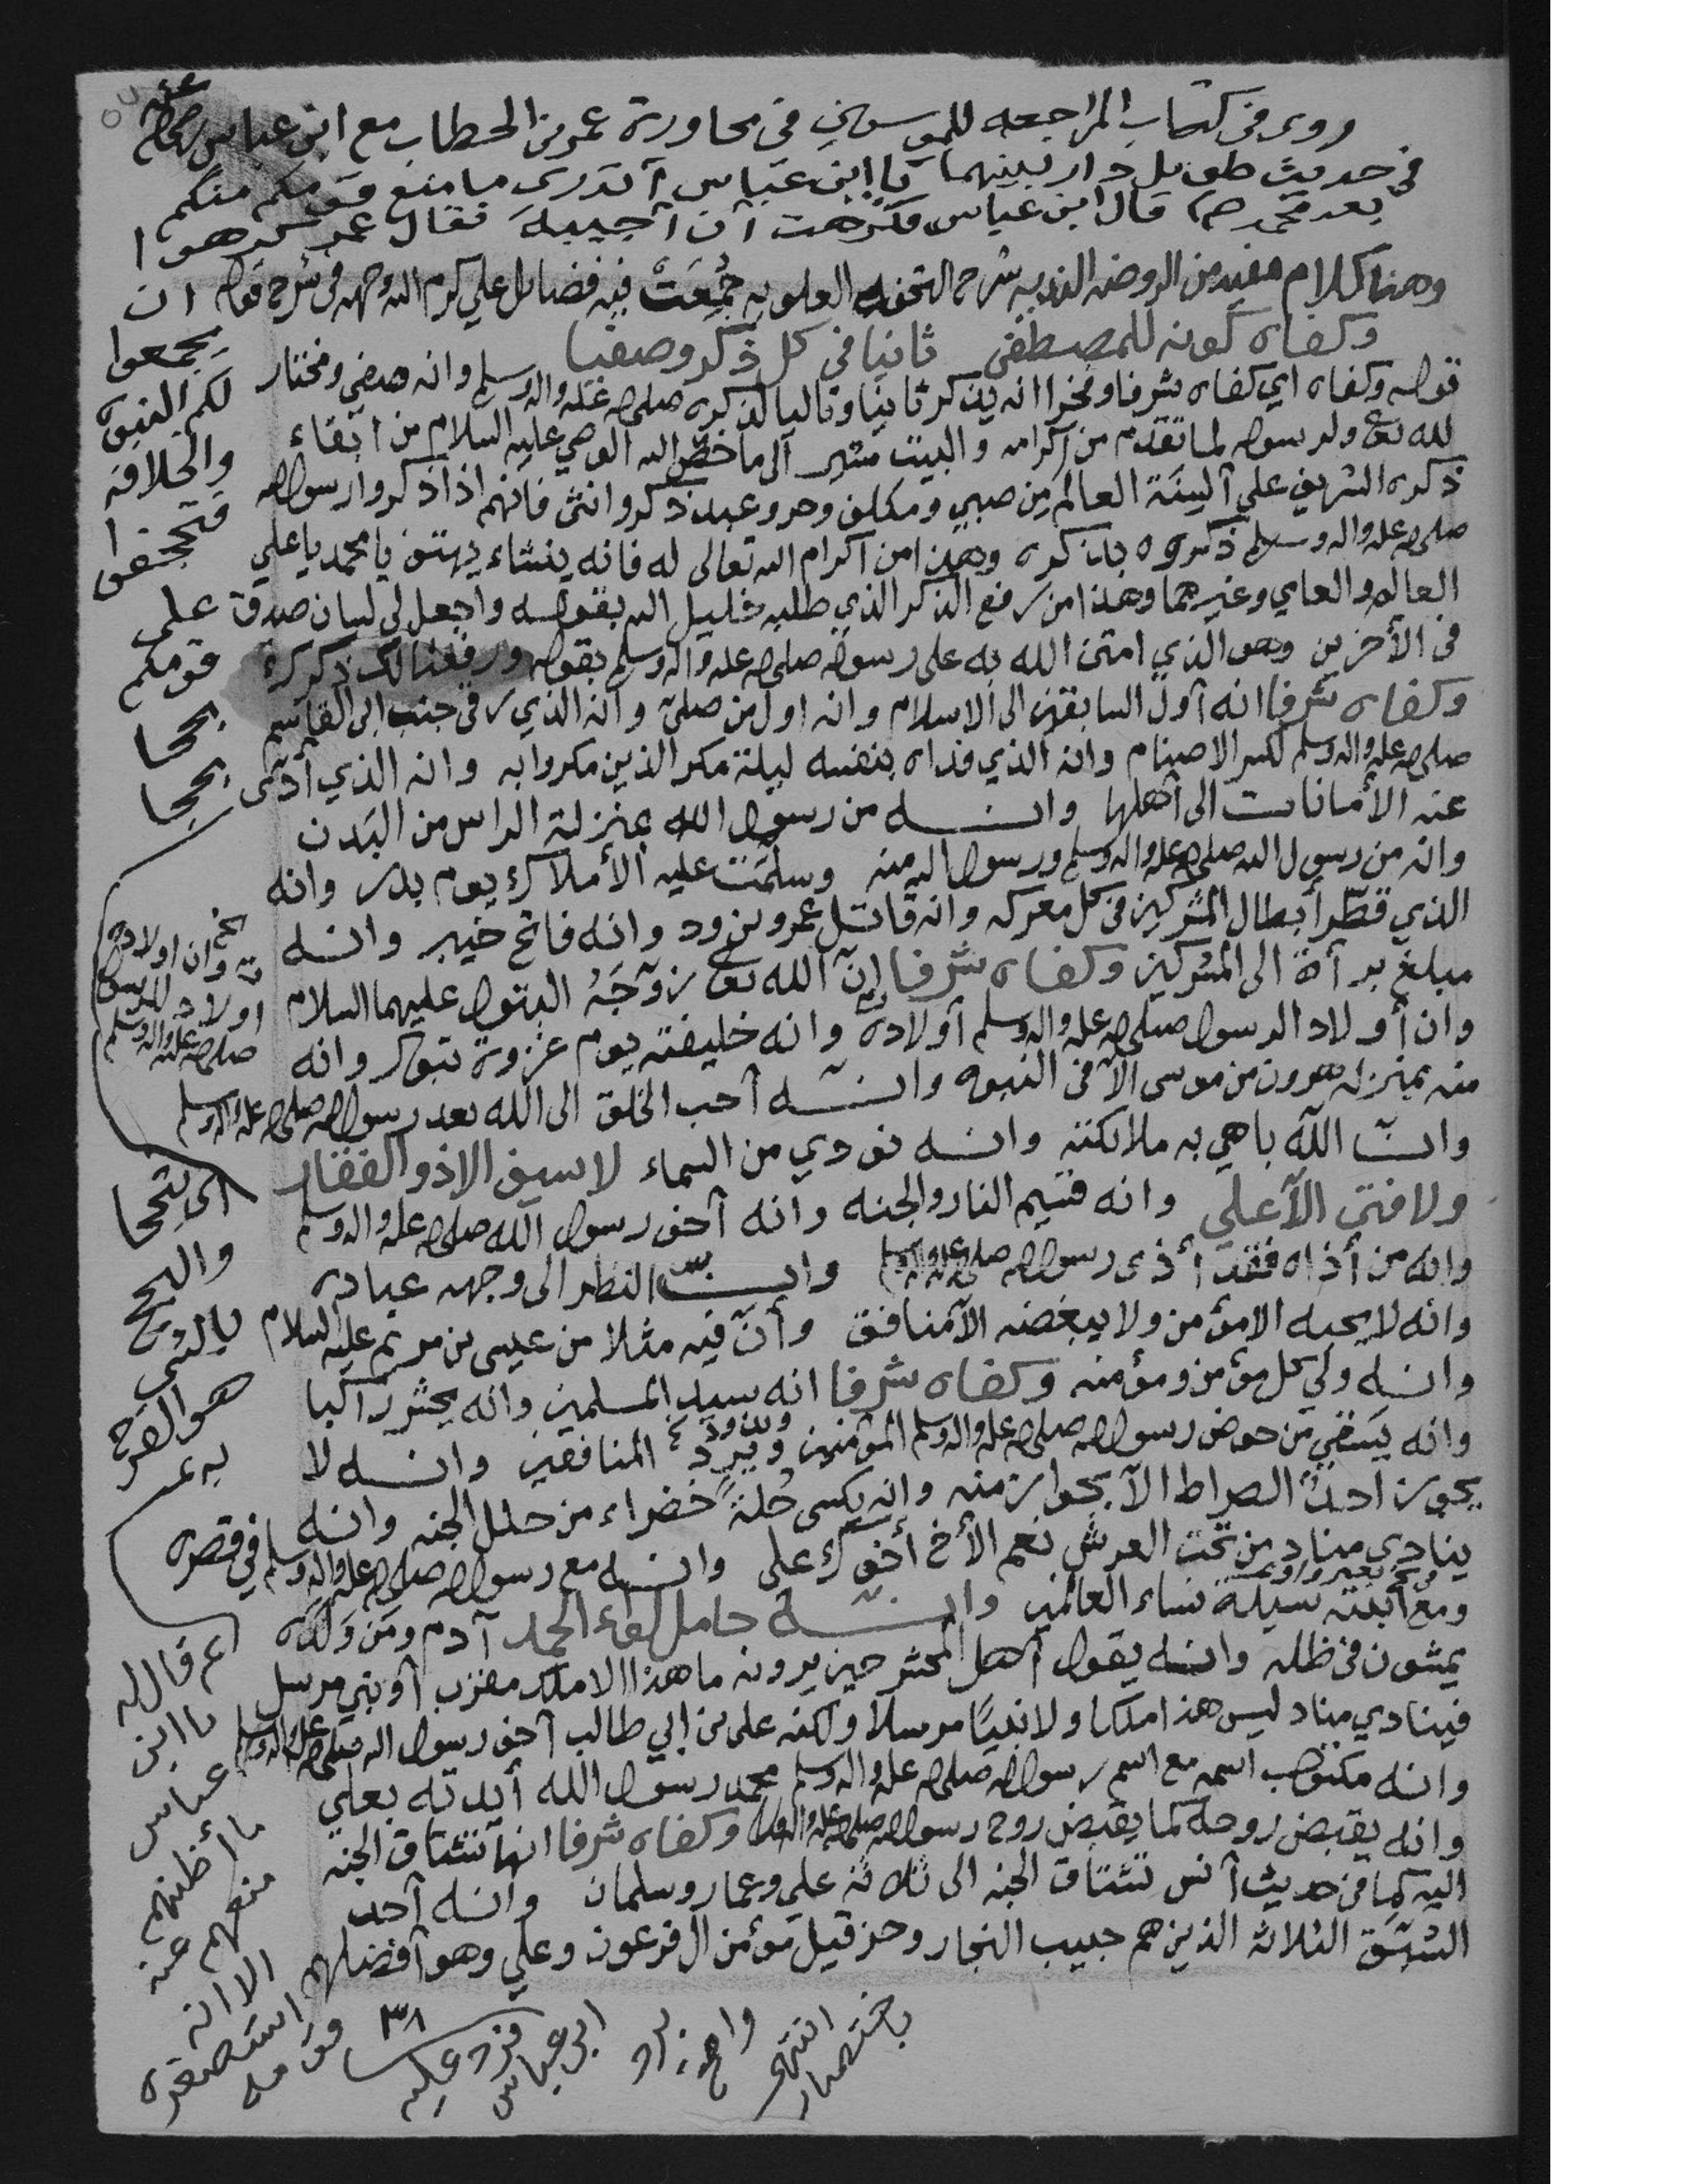 روى في كتاب المراجعه للموسوي في محاورة عمر بن الخطاب مع ابن عباس
في حديث طويل دار بينهما يا ابن عباس أتدري ما منع قومكم منكم
بعد محمد صم قال ابن عباس فكرهت أن أجيبه فقال عمر كرهوا
ان
يجمعوا
لكم النبوة
والخلافة
فتجحفوا
على
قومكم
بجحا
بجحا
أي بتجحا
والبجح
بالشي
هو الفرح
به
ثم قال له
يا ابن
عباس
ما أظنهم
منعهم عنه
الا انه
استصغره
قومه
فرد عليه
ابن عباس
انتهى
باختصار
وهنا كلام مفيد من الروضه النديه شرح التحفه العلويه جُمِعَتْ فيه فضايل علي كرم الله وجهه في شرح قوله
وكفاه كونه للمصطفى ثانيا في كل ذكر وصفيا
قوله وكفاه اي كفاه شرفا وفخرا انه يذكر ثانيا وتاليا لذكره صلى الله عليه واله وسلم وانه صفي ومختار
لله تعالى ولرسوله لما تقدم من اكرامه والبيت مشير الى ما خص الله الوصي عليه السلام من ابقاء
ذكره الشريف على ألسِنَة العالم من صبي ومكلف وحر وعبد ذكر وانثى فانهم اذا ذكروا رسول الله
صلى الله عليه واله وسلم ذكروه بذكره وهذا من اكرام الله تعالى له فانه ينشاء يهتف يا محمد يا علي
العالم والعامي وغيرهما وهذا من رفع الذكر الذي طلبه خليل الله بقوله واجعل لي لسان صدق
في الأخرين وهو الذي امتن الله به على رسوله صلى الله عليه واله وسلم بقوله ورفعنا لك ذكرك
وكفاه شرفا انه أول السابقين الى الاسلام وانه اول من صلى وانه الذي رقى جنب ابي القاسم
صلى الله عليه واله وسلم لكسر الاصنام وانه الذي فداه بنفسه ليلة مكر الذين مكروا به وانه الذي أدى
عنه الأمانات الى أهلها وانه من رسول الله بمنزلة الراس من البدن
وانه من رسول الله صلى الله عليه واله وسلم ورسول الله منه وسلّمَت عليه الأملاك يوم بدر وانه
الذي قطّر أبطال المشركين في كل معركه وانه قاتل عمرو بن ود وانه فاتح خيبر وانه
مبلغ برأة الى المشركين وكفاه شرفا إنّ الله تعالى زوّجَهُ البتول عليهما السلام
وان أولاد الرسول صلى الله عليه واله وسلم أولاده وانه خليفته يوم غزوة تبوك وانه
وان اولاده
اولاد الرسول
صلى الله عليه واله وسلم
منه بمنزله هرون من موسى الا في النبوه وانه أحب الخلق الى الله بعد رسول الله صلى الله عليه واله وسلم
وانّ الله باهى به ملائكته وانه نودي من السماء لا سيف الا ذو الفقار
ولا فتى الا علي وانه قسيم النار والجنه وانه أخو رسول الله صلى الله عليه واله وسلم
وانه من أذاه فقد أذى رسول الله صلى الله عليه واله وسلم وانّ النظر الى وجهه عباده
وانه لا يحبه الا مؤمن ولا يبغضه الا منافق وأنّ فيه مثلا من عيسى بن مريم عليه السلام
وانه ولي كل مؤمن ومؤمنه وكفاه شرفا انه سيد المسلمين وانه يحشر راكبا
وانه يسقي من حوض رسول الله صلى الله عليه واله وسلم المؤمنين ويرد المنافقين وانه لا
يجوز احدٌ الصراط الا بجواز منه وانه يكسى حُلةً خضراء من حلل الجنه وانه
ينادي مناد من تحت العرش نعم الأخ أخوك علي وانه مع رسول الله صلى الله عليه واله وسلم في قصره
ومع أبنته سيدة نساء العالمين وانه حامل لواء الحمد آدم ومن ولده
يمشون في ظله وانه يقول أهل المحشر حين يرونه ما هذا الا ملك مقرب أو نبي مرسل
فينادي مناد ليس هذا ملكا ولا نبيًا مرسلا ولكنه علي بن ابي طالب أخو رسول الله صلى الله عليه واله وسلم
وانه مكتوب اسمه مع اسم رسول الله صلى الله عليه واله وسلم محمد رسول الله أيدته بعلي
وانه يقبض روحه كما يقبض روح رسول الله صلى الله عليه واله وسلم وكفاه شرفا انها تشتاق الجنه
اليه كما في حديث أنس تشتاق الجنه الى ثلاثة علي وعمار وسلمان وانه أحد
السُبّق الثلاثة الذين هم حبيب النجار وحزقيل مؤمن ال فرعون وعلي وهو أفضلهم
٣٨